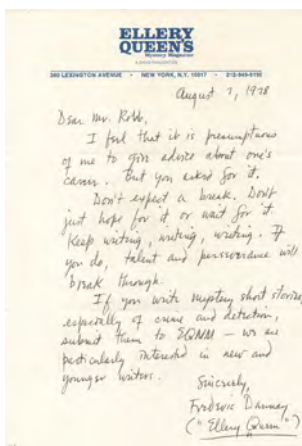 ELLERY
QUEEN'S
Mystery Magazine
A DAVIS PUBLICATION
380 LEXINGTON AVENUE • NEW YORK, N.Y. 10017 • 212-949-9190
August 7, 1978
Dear Mr. Robb,
I feel that it is presumptuous
of me to give advice about one's
career. But you asked for it.
Don't expect a break. Don't
just hope for it or wait for it.
Keep writing, writing, writing. If
you do, talent and perseverance will
break through.
If you write mystery short stories,
especially of crime and detection,
submit them to EQMM — we are
particularly interested in new and
younger writers.
Sincerely,
Frederic Dannay
("Ellery Queen")